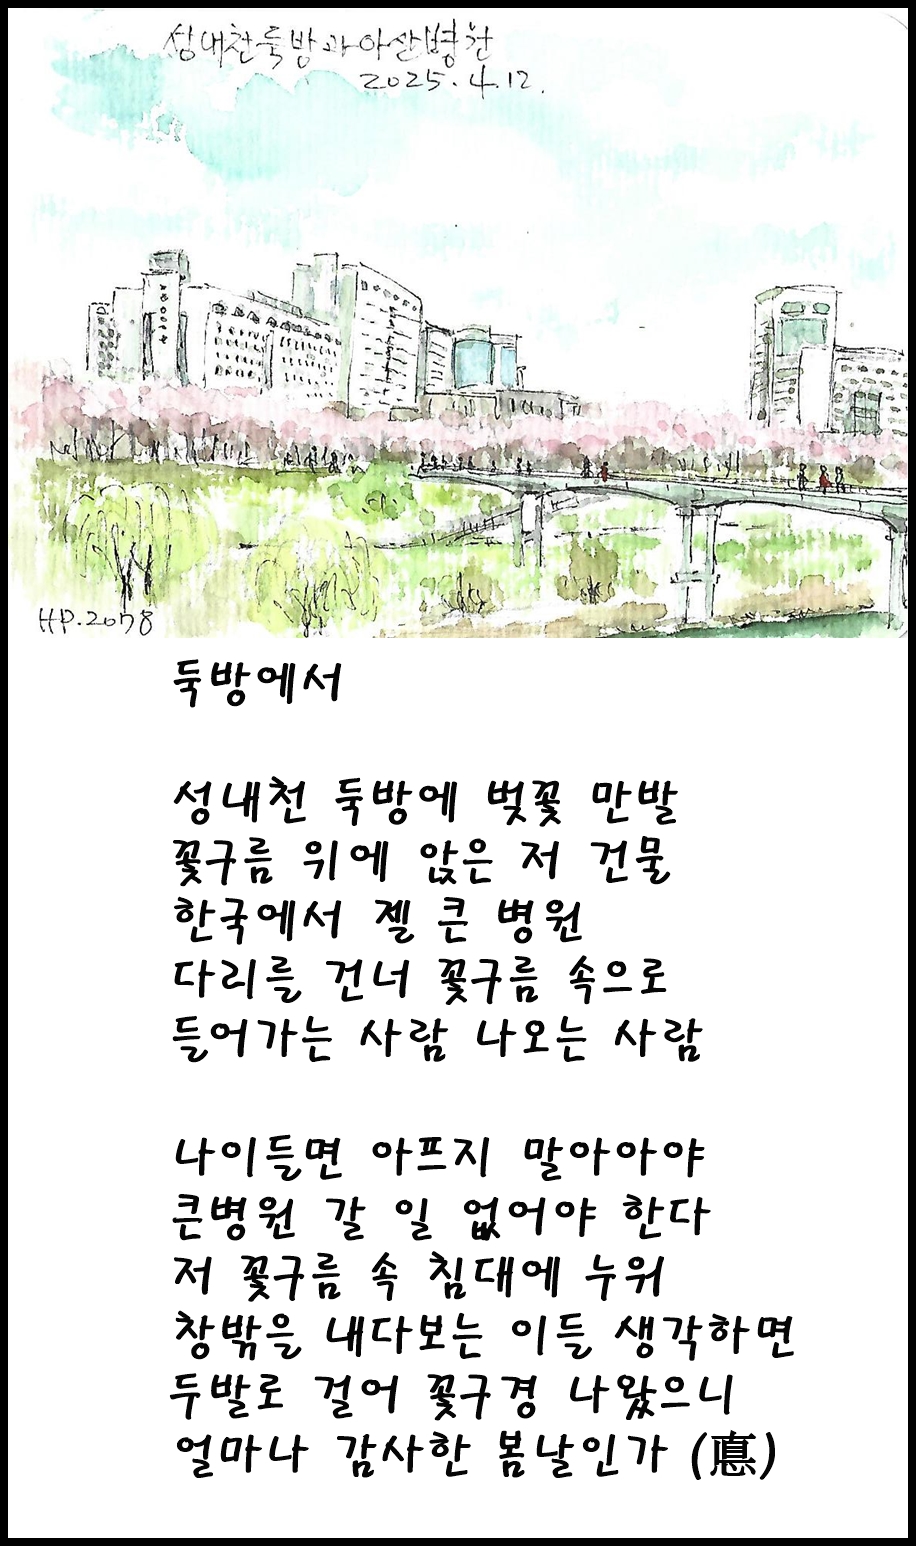 성내천둑방과아산병원
2025.4.12.
HP.2078
둑방에서
성내천 둑방에 벚꽃 만발
꽃구름 위에 앉은 저 건물
한국에서 젤 큰 병원
다리를 건너 꽃구름 속으로
들어가는 사람 나오는 사람
나이들면 아프지 말아아야
큰병원 갈 일 없어야 한다
저 꽃구름 속 침대에 누워
창밖을 내다보는 이들 생각하면
두발로 걸어 꽃구경 나왔으니
얼마나 감사한 봄날인가 (悳)